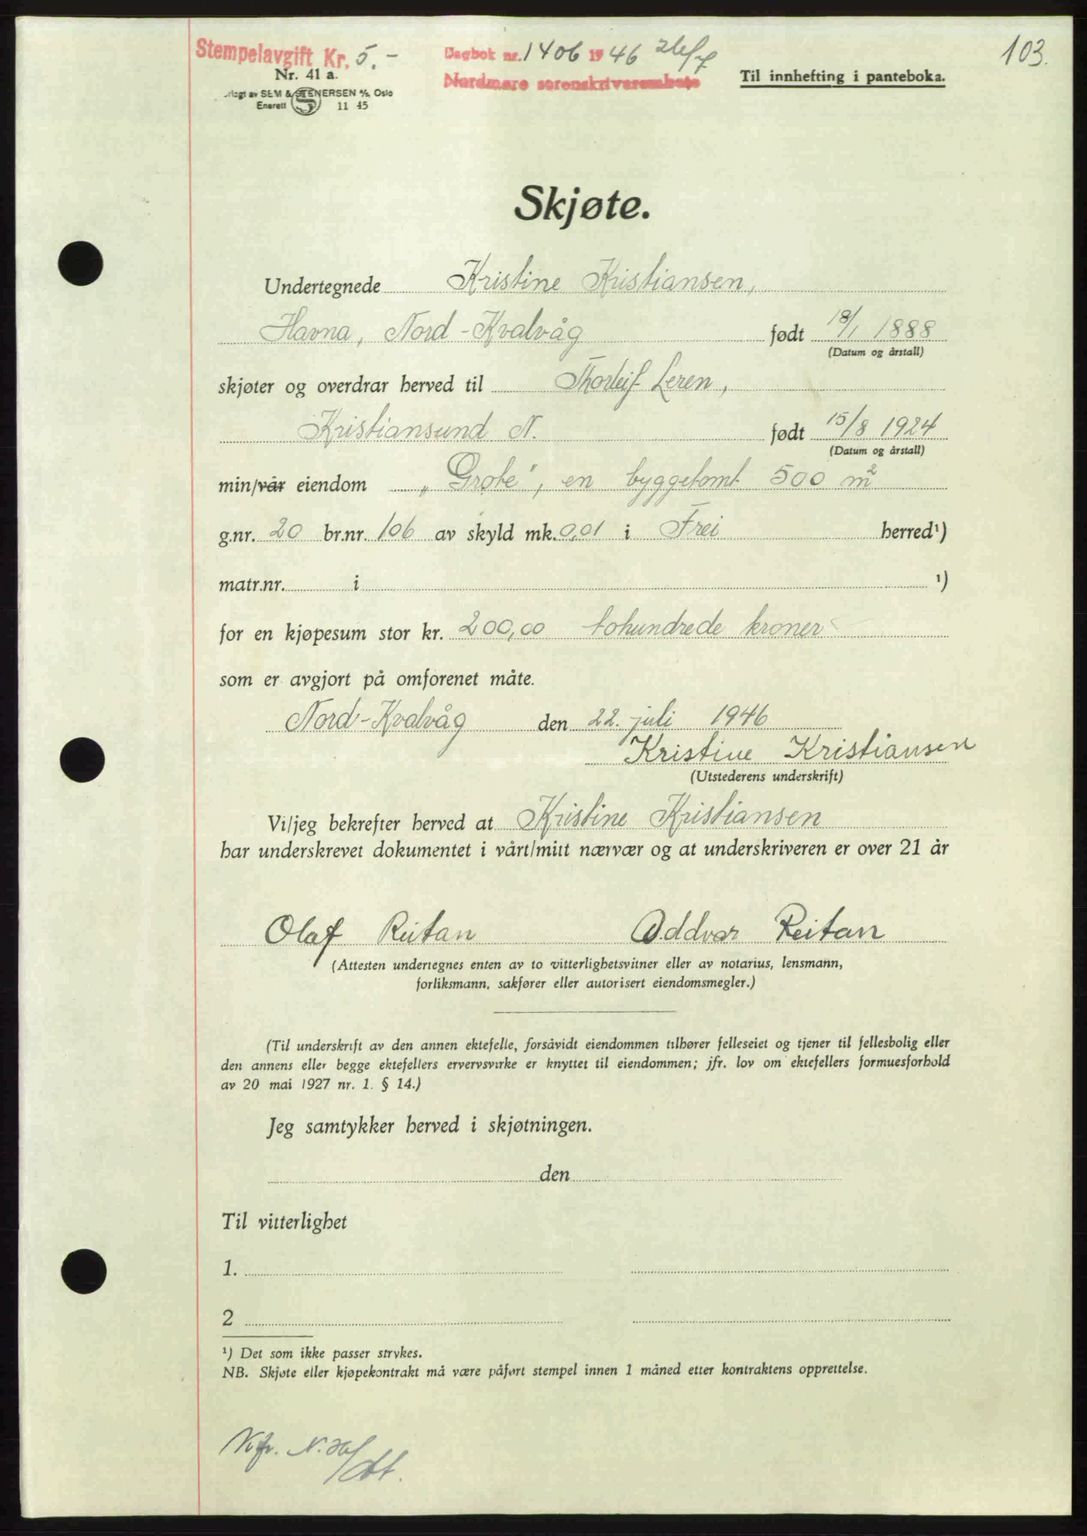 Stempelavgift Kr. 5.-
Nr. 41 a.
SEM & STENERSEN A/S, Oslo
Enerett S 11 45
Dagbok nr. 1406 1946 26/7
Nordmøre sorenskriverembete
Til innhefting i panteboka.
103.
Skjøte.
Undertegnede Kristine Kristiansen,
Havna, Nord-Kvalvåg født 18/1 1888
(Datum og årstall)
skjøter og overdrar herved til Thorleif Leren,
Kristiansund N. født 15/8 1924
(Datum og årstall)
min/vår eiendom „Grøte", en byggetomt 500 m2
g.nr. 20 br.nr. 106 av skyld mk. 0,01 i Frei herred¹)
matr.nr. i ¹)
for en kjøpesum stor kr. 200,00 tohundrede kroner
som er avgjort på omforenet måte.
Nord-Kvalvåg den 22. juli 1946
Kristine Kristiansen
(Utstederens underskrift)
Vi/jeg bekrefter herved at Kristine Kristiansen
har underskrevet dokumentet i vårt/mitt nærvær og at underskriveren er over 21 år
Olaf Reitan Oddvar Reitan
(Attesten undertegnes enten av to vitterlighetsvitner eller av notarius, lensmann,
forliksmann, sakfører eller autorisert eiendomsmegler.)
(Til underskrift av den annen ektefelle, forsåvidt eiendommen tilhører felleseiet og tjener til fellesbolig eller
den annens eller begge ektefellers ervervsvirke er knyttet til eiendommen; jfr. lov om ektefellers formuesforhold
av 20 mai 1927 nr. 1. § 14.)
Jeg samtykker herved i skjøtningen.
den
Til vitterlighet
1.
2
¹) Det som ikke passer strykes.
NB. Skjøte eller kjøpekontrakt må være påført stempel innen 1 måned etter kontraktens opprettelse.